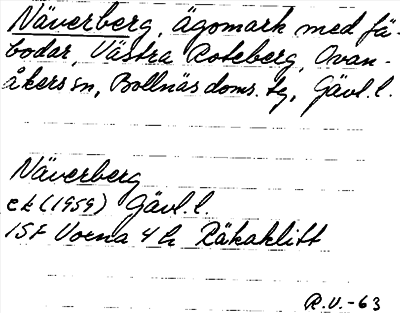 Näverberg, ägomark med fä-
bodar, Västra Roteberg, Ovan-
åkers sn, Bollnäs doms. tg, Gävl. l.
Näverberg
ek (1959) Gävl. l.
15F Voxna 4 h Räkaklitt
R.V.-63